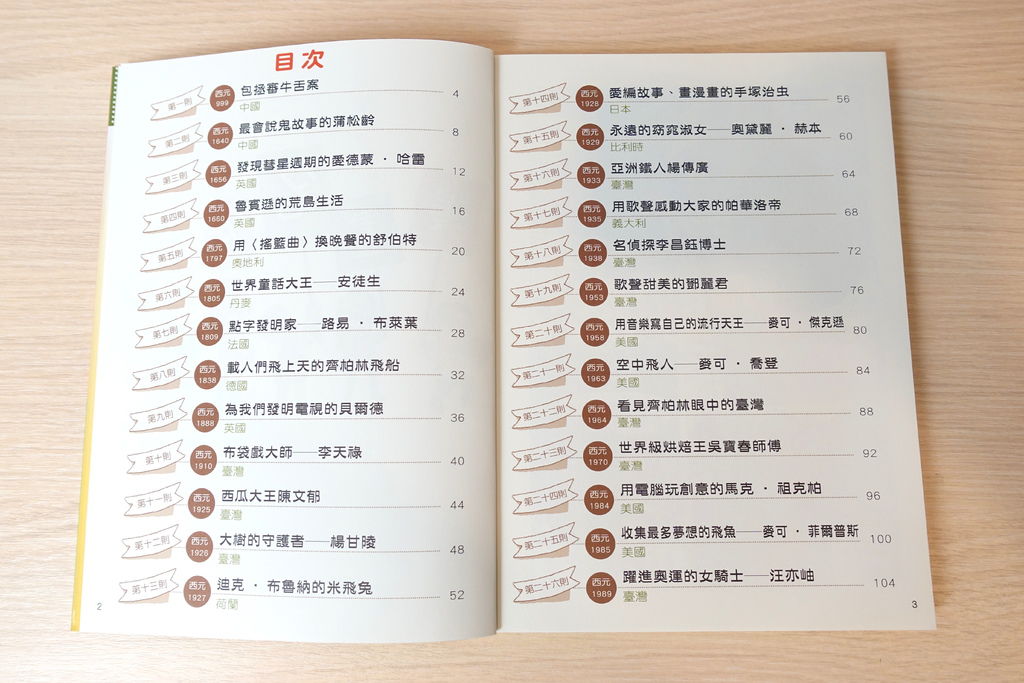 目次
第一則 西元 999 包拯審牛舌案 4
中國
第二則 西元 1640 最會說鬼故事的蒲松齡 8
中國
第三則 西元 1656 發現彗星週期的愛德蒙・哈雷 12
英國
第四則 西元 1660 魯賓遜的荒島生活 16
英國
第五則 西元 1797 用〈搖籃曲〉換晚餐的舒伯特 20
奧地利
第六則 西元 1805 世界童話大王──安徒生 24
丹麥
第七則 西元 1809 點字發明家──路易・布萊葉 28
法國
第八則 西元 1838 載人們飛上天的齊柏林飛船 32
德國
第九則 西元 1888 為我們發明電視的貝爾德 36
英國
第十則 西元 1910 布袋戲大師──李天祿 40
臺灣
第十一則 西元 1925 西瓜大王陳文郁 44
臺灣
第十二則 西元 1926 大樹的守護者──楊甘陵 48
臺灣
第十三則 西元 1927 迪克・布魯納的米飛兔 52
荷蘭
2
第十四則 西元 1928 愛編故事、畫漫畫的手塚治虫 56
日本
第十五則 西元 1929 永遠的窈窕淑女──奧黛麗・赫本 60
比利時
第十六則 西元 1933 亞洲鐵人楊傳廣 64
臺灣
第十七則 西元 1935 用歌聲感動大家的帕華洛帝 68
義大利
第十八則 西元 1938 名偵探李昌鈺博士 72
臺灣
第十九則 西元 1953 歌聲甜美的鄧麗君 76
臺灣
第二十則 西元 1958 用音樂寫自己的流行天王──麥可・傑克遜 80
美國
第二十一則 西元 1963 空中飛人──麥可・喬登 84
美國
第二十二則 西元 1964 看見齊柏林眼中的臺灣 88
臺灣
第二十三則 西元 1970 世界級烘焙王吳寶春師傅 92
臺灣
第二十四則 西元 1984 用電腦玩創意的馬克・祖克柏 96
美國
第二十五則 西元 1985 收集最多夢想的飛魚──麥可・菲爾普斯 100
美國
第二十六則 西元 1989 躍進奧運的女騎士──汪亦岫 104
臺灣
3